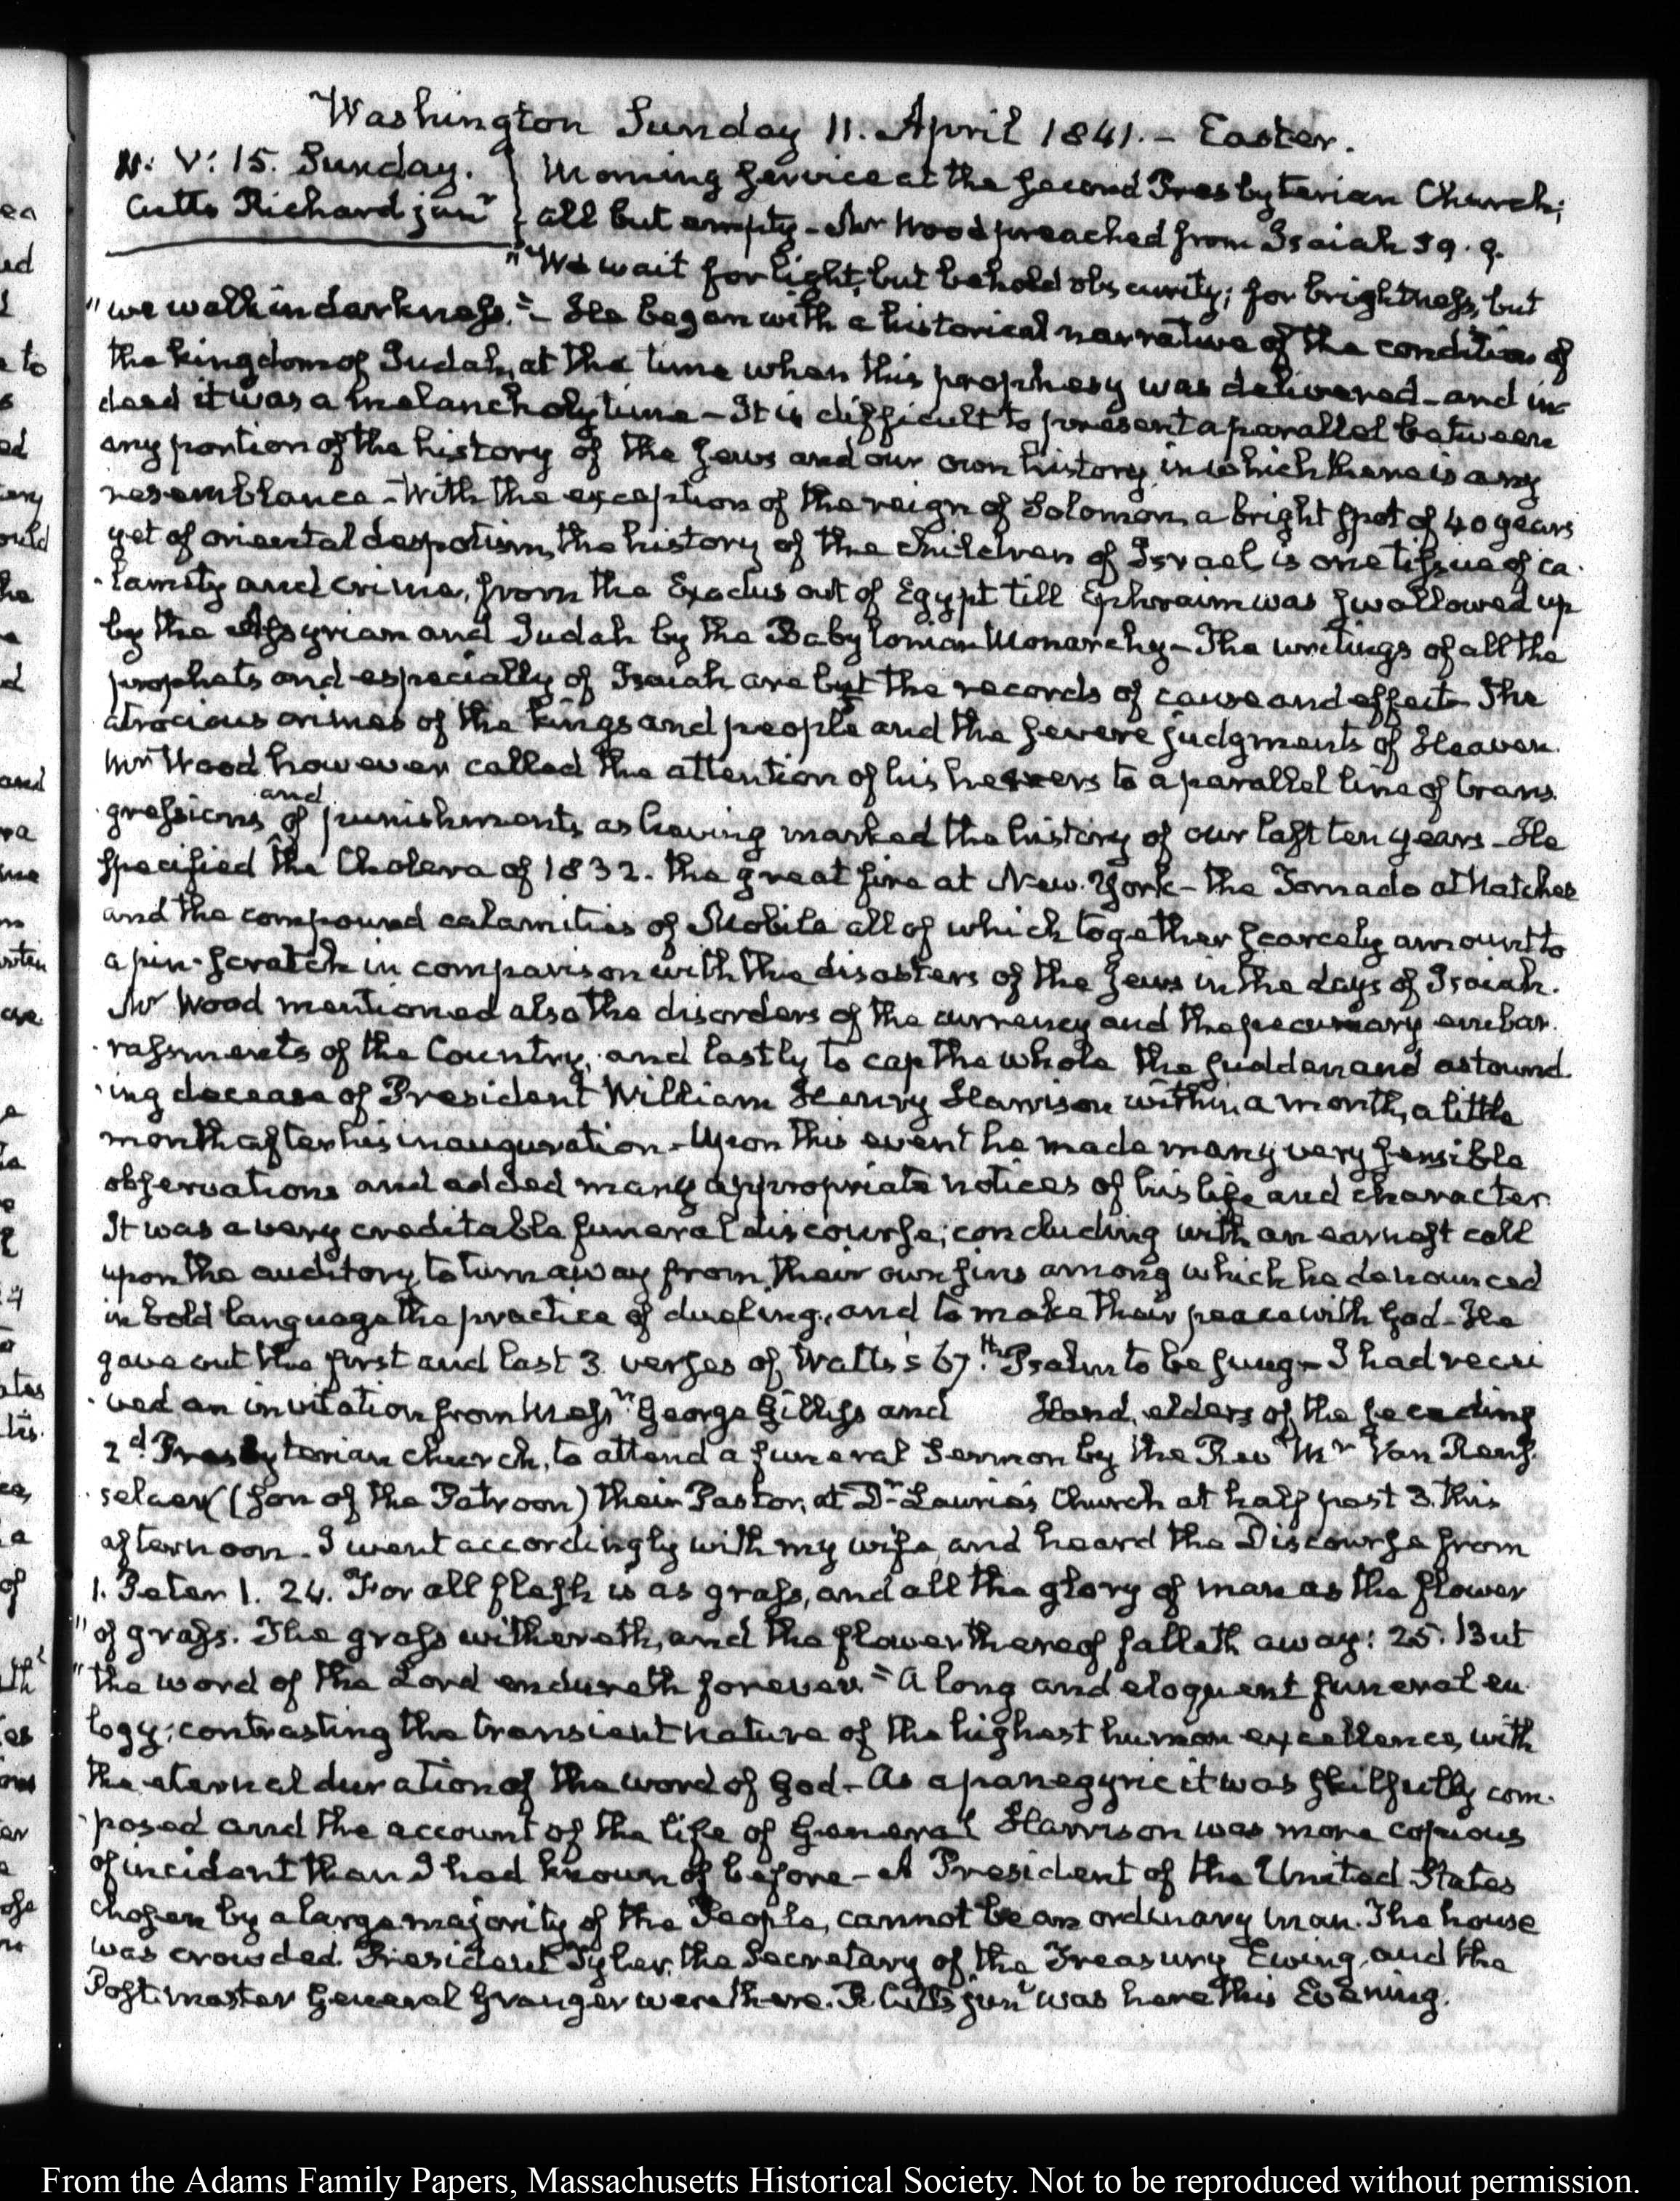 Washington Sunday 11. April 1841. – Easter.
N: V: 15. Sunday.
Cutts Richard junr
Morning service at the second Presbyterian Church;
all but empty – Mr Wood preached from Isaiah 59. 9.
"We wait for light, but behold obscurity; for brightness, but
"we walk in darkness." – He began with a historical narrative of the condition of
the kingdom of Judah, at the time when this prophesy was delivered – and in
deed it was a melancholy time – It is difficult to present a parallel between
any portion of the history of the Jews and our own history, in which there is any
resemblance – With the exception of the reign of Solomon, a bright spot of 40 years
yet of oriental despotism, the history of the children of Israel is one tissue of ca-
-lamity and crime, from the Exodus out of Egypt till Ephraim was swallowed up
by the Assyrian and Judah by the Babylonian Monarchy – The writings of all the
prophets and especially of Isaiah are but the records of cause and effect – The
atrocious crimes of the kings and people and the severe judgments of Heaven.
Mr Wood however called the attention of his hearers to a parallel line of trans-
-gressions and of punishments, as having marked the history of our last ten years – He
specified the Cholera of 1832. the great fire at New-York – the Tornado at Natchez
and the compound calamities of Mobile all of which together scarcely amount to
a pin-scratch in comparison with the disasters of the Jews in the days of Isaiah.
Mr Wood mentioned also the disorders of the currency and the pecuniary embar-
-rassments of the Country; and lastly to cap the whole the sudden and astound-
-ing decease of President William Henry Harrison within a month, a little
month after his inauguration – Upon this event he made many very sensible
observations and added many appropriate notices of his life and character.
It was a very creditable funeral discourse; concluding with an earnest call
upon the auditory, to turn away from their own sins among which he denounced
in bold language the practice of dueling, and to make their peace with God – He
gave out the first and last 3 verses of Watts's 67.th Psalm to be sung – I had recei
-ved an invitation from Messrs George Gilliss and Hand, elders of the seceding
2d Presbyterian church, to attend a funeral Sermon by the Rev Mr Van Rens-
-selaer (son of the Patroon) their Pastor, at Dr Laurie's Church at half past 3. this
afternoon – I went accordingly with my wife, and heard the Discourse from
1. Peter 1. 24. For all flesh is as grass, and all the glory of man as the flower
"of grass. The grass withereth, and the flower thereof falleth away: 25. But
"the word of the Lord endureth forever." A long and eloquent funeral eu-
logy; contrasting the transient nature of the highest human excellence, with
the eternal duration of the word of God – As a panegyric it was skilfully com-
-posed and the account of the life of General Harrison was more copious
of incident than I had known of before – A President of the United States
chosen by a large majority of the People, cannot be an ordinary man. The house
was crowded. President Tyler, the Secretary of the Treasury Ewing, and the
Post-master General Granger were there. R. Cutts junr was here this Evening.
From the Adams Family Papers, Massachusetts Historical Society. Not to be reproduced without permission.